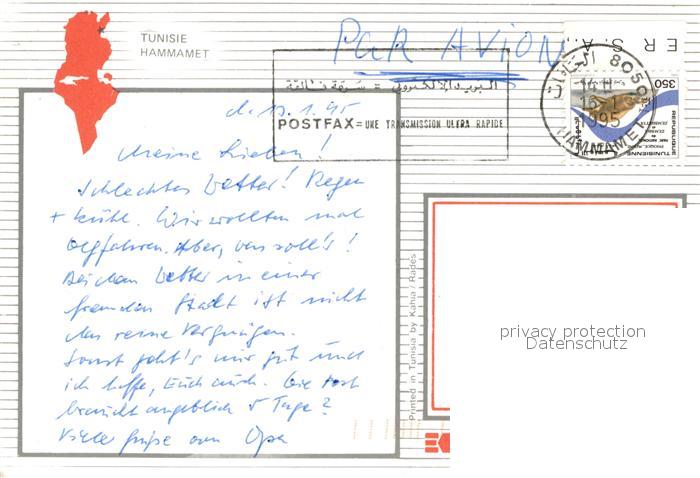 TUNISIE
HAMMAMET
PAR AVION
E R S. A
البريد الإلكتروني = سرعة فائقة
POSTFAX = UNE TRANSMISSION ULTRA RAPIDE
8050
14 H
1995
HAMMAMET
350
REPUBLIQUE TUNISIENNE
d. 13.1.95
Meine Lieben!
Schlechtes Wetter! Regen
+ kühl. Wir wollten mal
wegfahren. Aber, was soll's!
Bei dem Wetter in einer
fremden Stadt ist nicht
das reine Vergnügen.
Sonst geht's mir gut und
ich hoffe, Euch auch. Die Post
braucht angeblich 5 Tage?
Viele Grüße vom Opa
Printed in Tunisia by Kahia / Rades
privacy protection
Datenschutz